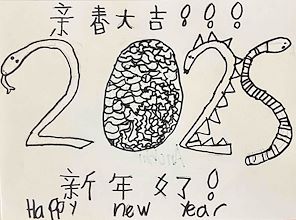 亲春大吉!!!
2025
新年好!
Happy new Year